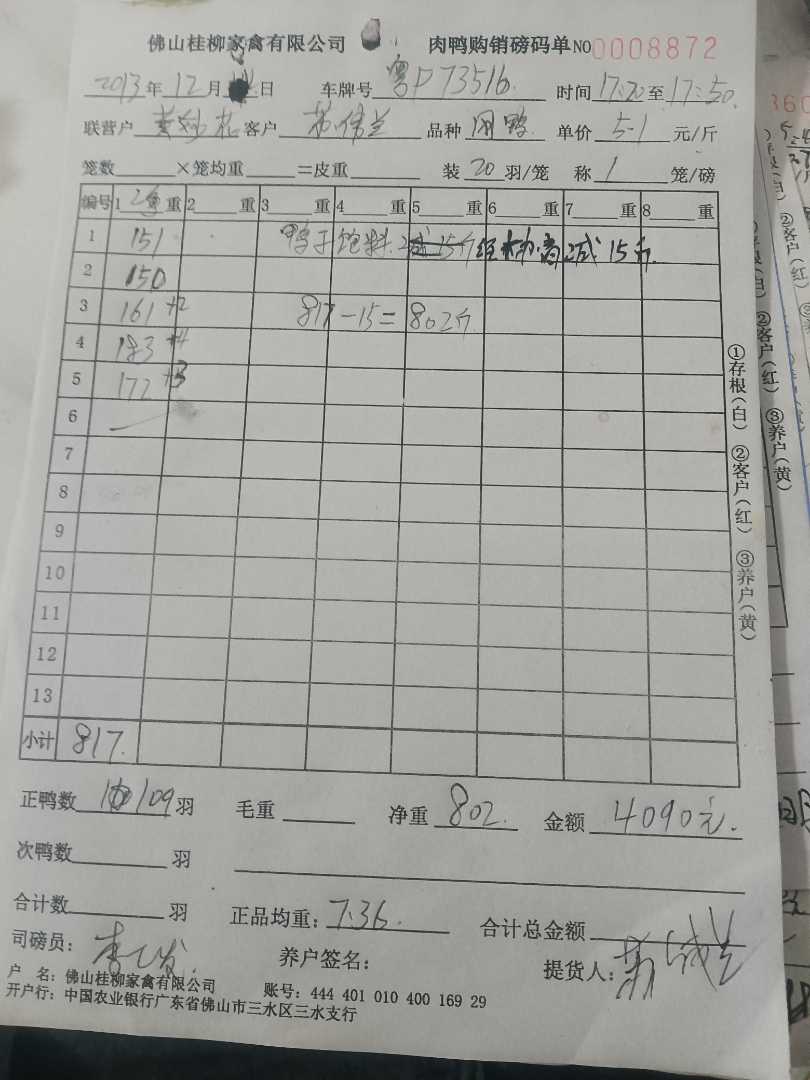 佛山桂柳家禽有限公司 肉鸭购销磅码单 NO 0008872
2013年12月 日 车牌号 粤P73516 时间 17:20至17:50.
联营户 客户 品种 鸭 单价 5.1 元/斤
笼数 ×笼均重 =皮重 装 20 羽/笼 称 1 笼/磅
编号 1 重 2 重 3 重 4 重 5 重 6 重 7 重 8 重
1 151 鸭子饱料 减15斤 减15斤.
2 150
3 161 +2 817-15=802斤
4 183 +4
5 172 +3
6
7
8
9
10
11
12
13
小计 817.
正鸭数 109 羽 毛重 净重 802. 金额 4090元.
次鸭数 羽
合计数 羽 正品均重: 7.36. 合计总金额
司磅员: 养户签名: 提货人:
户 名: 佛山桂柳家禽有限公司 账号: 444 401 010 400 169 29
开户行: 中国农业银行广东省佛山市三水区三水支行
①存根(白) ②客户(红) ③养户(黄)
②客户(红) ③养户(黄)